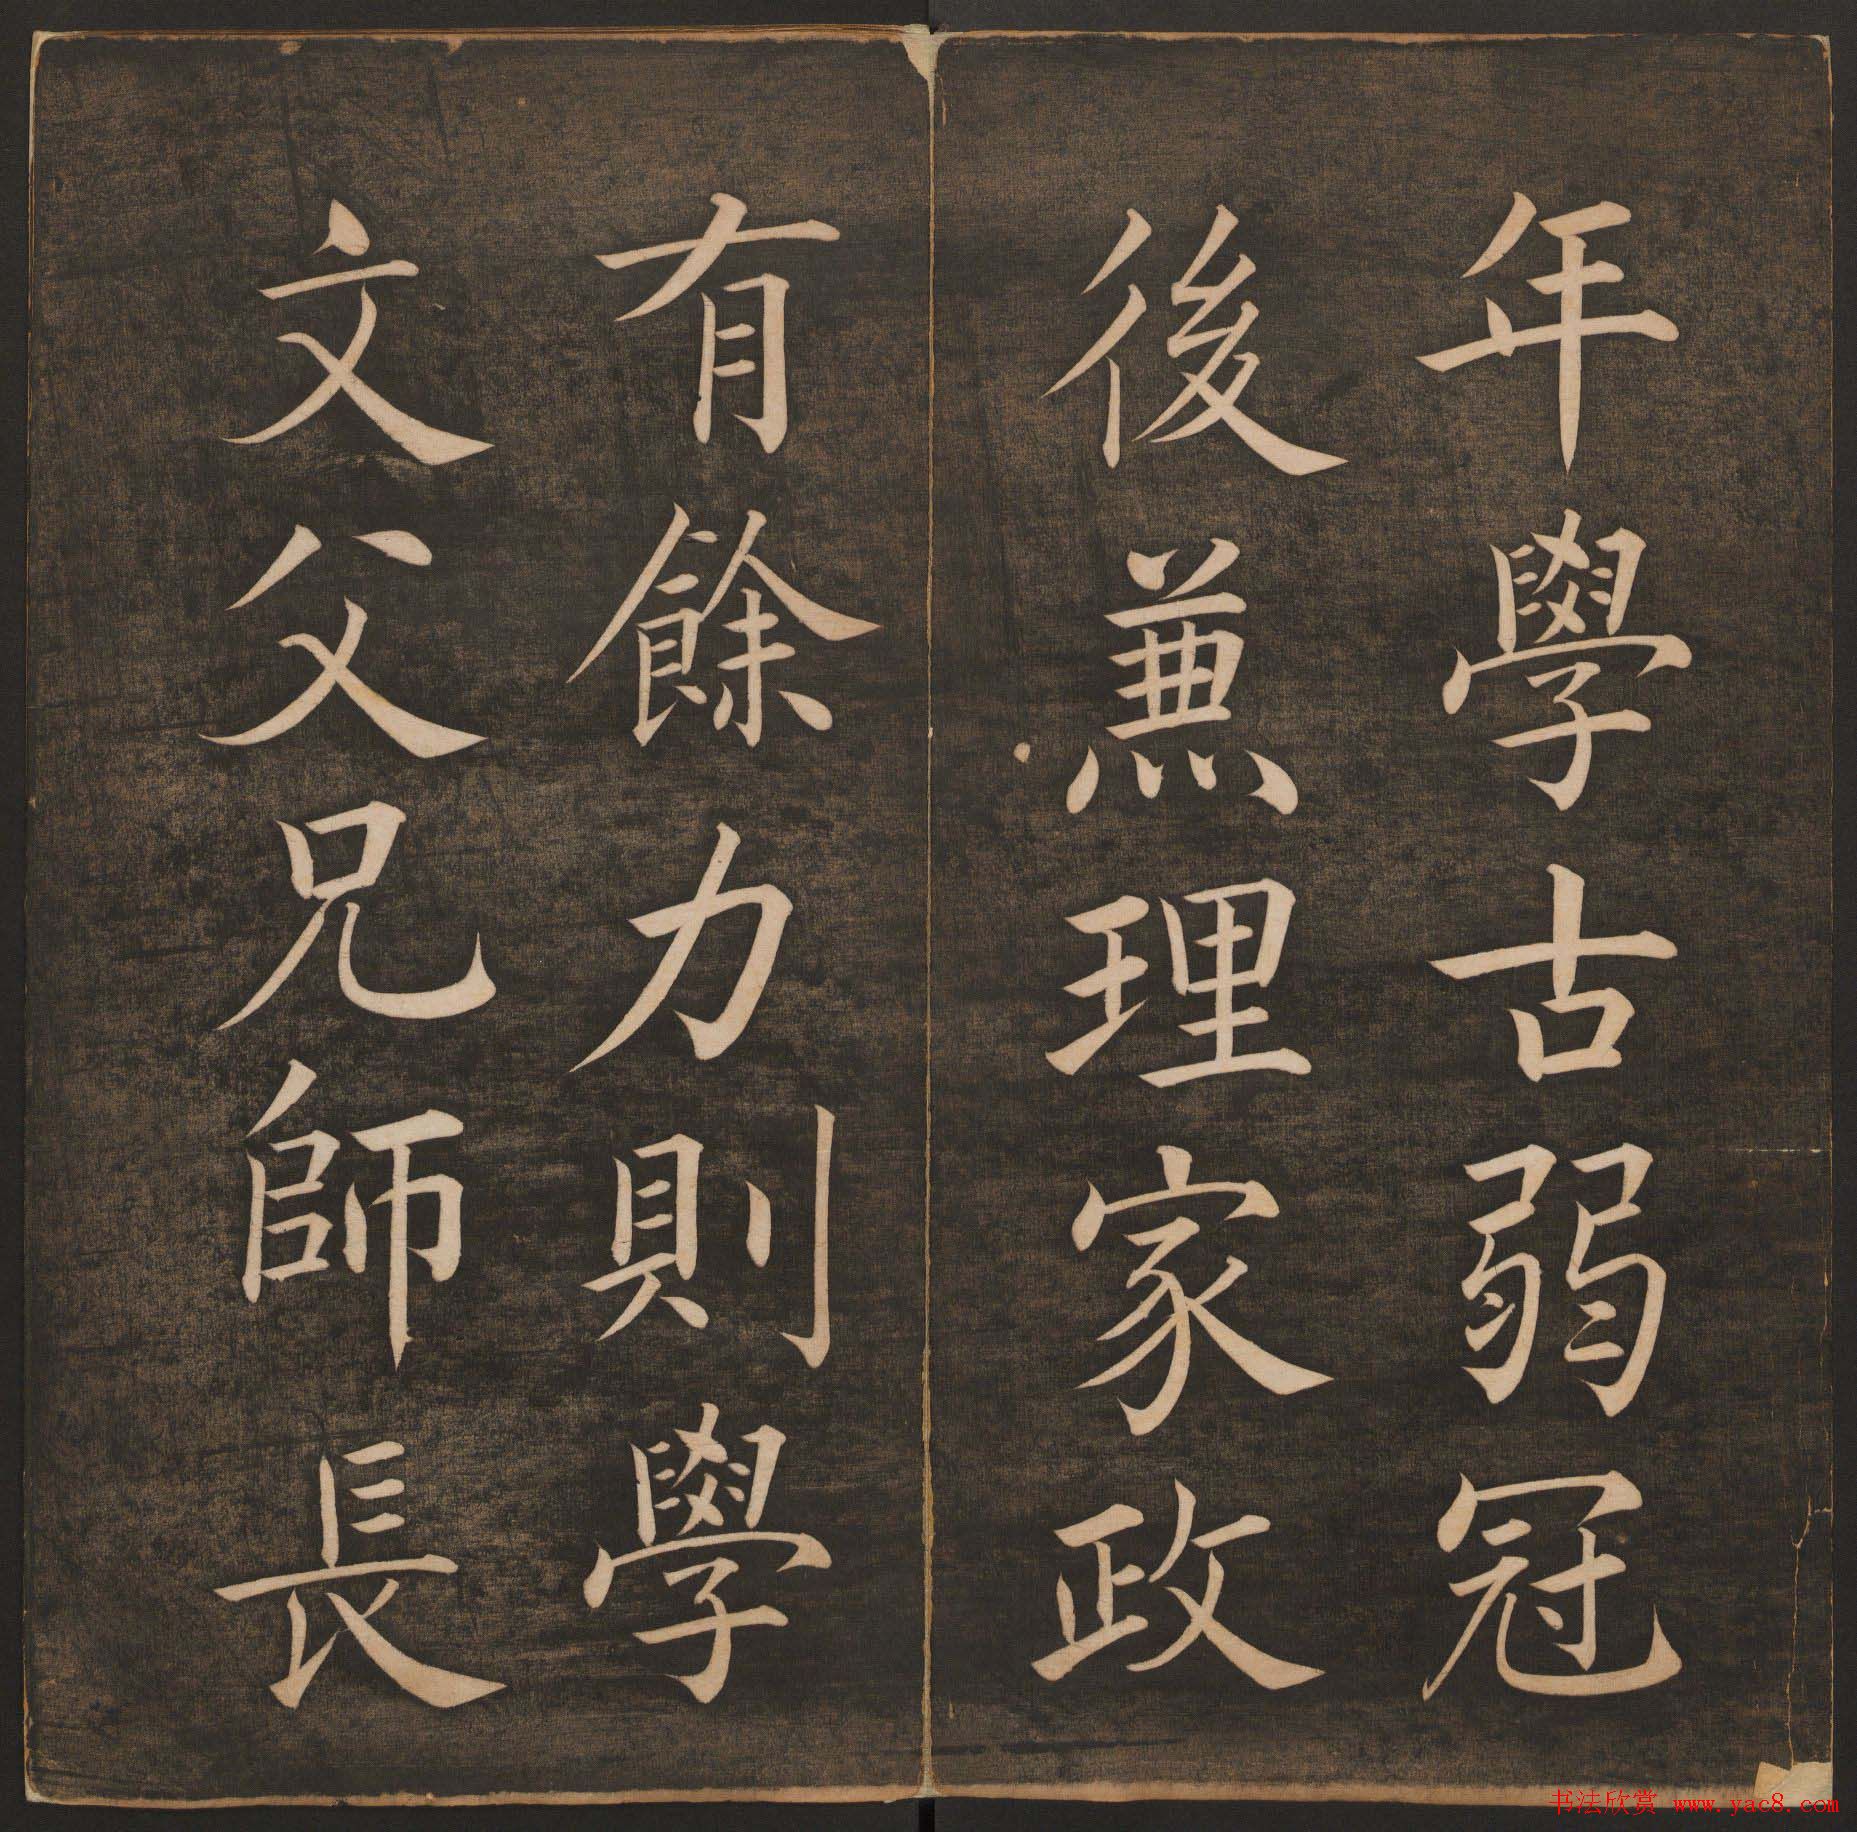 年學古弱冠
後兼理家政
有餘力則學
文父兄師長
书法欣赏 www.yac8.com